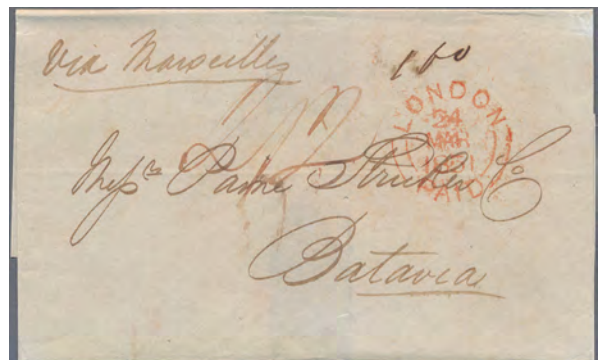 Via Marseilles
160
LONDON
24
MAR
PAID
Mess.rs Paine Stricker & Co
Batavia